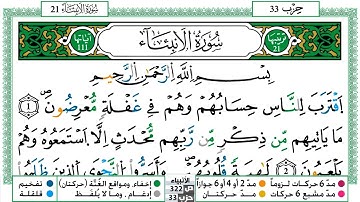 سُورَةُ الأَنْبِيَاءِ 21
حِزْب 33
ترتيبها 21
سُورَةُ الأَنْبِيَاءِ
آياتها 111
بِسْمِ اللَّهِ الرَّحْمَٰنِ الرَّحِيمِ
ٱقْتَرَبَ لِلنَّاسِ حِسَابُهُمْ وَهُمْ فِى غَفْلَةٍ مُّعْرِضُونَ ۝1
مَا يَأْتِيهِم مِّن ذِكْرٍ مِّن رَّبِّهِم مُّحْدَثٍ إِلَّا ٱسْتَمَعُوهُ وَهُمْ
يَلْعَبُونَ ۝2 لَاهِيَةً قُلُوبُهُمْ وَأَسَرُّوا۟ ٱلنَّجْوَى ٱلَّذِينَ ظَلَمُوا۟
مدّ 6 حركات لزوماً مدّ 2 أو 4 أو 6 جوازاً إخفاء، ومواقع الغُنَّة (حركتان) تفخيم
مدّ مشبع 6 حركات مدّ حركتان إدغام، وما لا يُلفَظ قلقلة
الأنبياء
ص 322
حزب 33